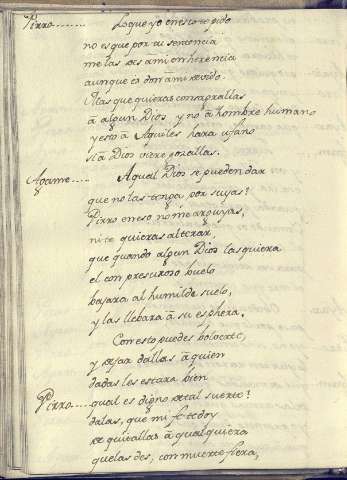 Pirro...... Lo que yo en esto te pido
no es que por tu sentencia
me las des a mi en herencia
aunque es don a mi devido.
Mas que quieras consagrallas
â algun Dios, y no â hombre humano
y esto â Aquiles hara ufano
si â Dios viere gozallas.
Agame..... A qual Dios se pueden dar
que no las tenga por suyas?
Pirro en eso no me arguyas,
ni te quieras alterar,
que quando algun Dios las quiera
el con presuroso buelo
bajara al humilde suelo,
y las llebara â su esphera.
Con esto puedes bolverte,
y dejar dallas â quien
dadas les estara bien
Pirro.... qual es digno de tal suerte?
dalas, que mi fe te doy
de quitallas â qualquiera
que las des, con muerte fiera,